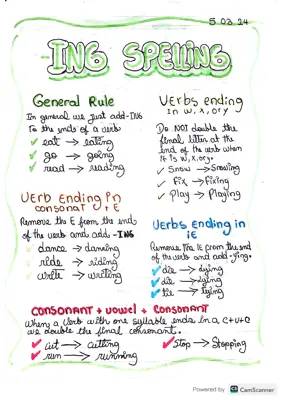 5.03.24
ING SPELLING
General Rule
In general we just add -ING
To the ends of a verb
eat → eating
go → going
read → reading
Verbs ending
in w, x, or y
Do NOT double the
final letter at the
end of the verb when
it is w, x, or y.
Snow → Snowing
Fix → Fixing
Play → Playing
Verb Ending in
consonat + E
Remove the E from the end
of the verb and add -ING
dance → dancing
ride → riding
write → writing
Verbs ending in
ie
Remove the IE from the end
of the verb and add -ying.
die → dying
lie → lying
tie → tying
CONSONANT + VOWEL + CONSONANT
When a Verb with one syllable ends in a c+v+c
we double the final consonant.
cut → cutting
run → running
Stop → Stopping
Powered by CS CamScanner